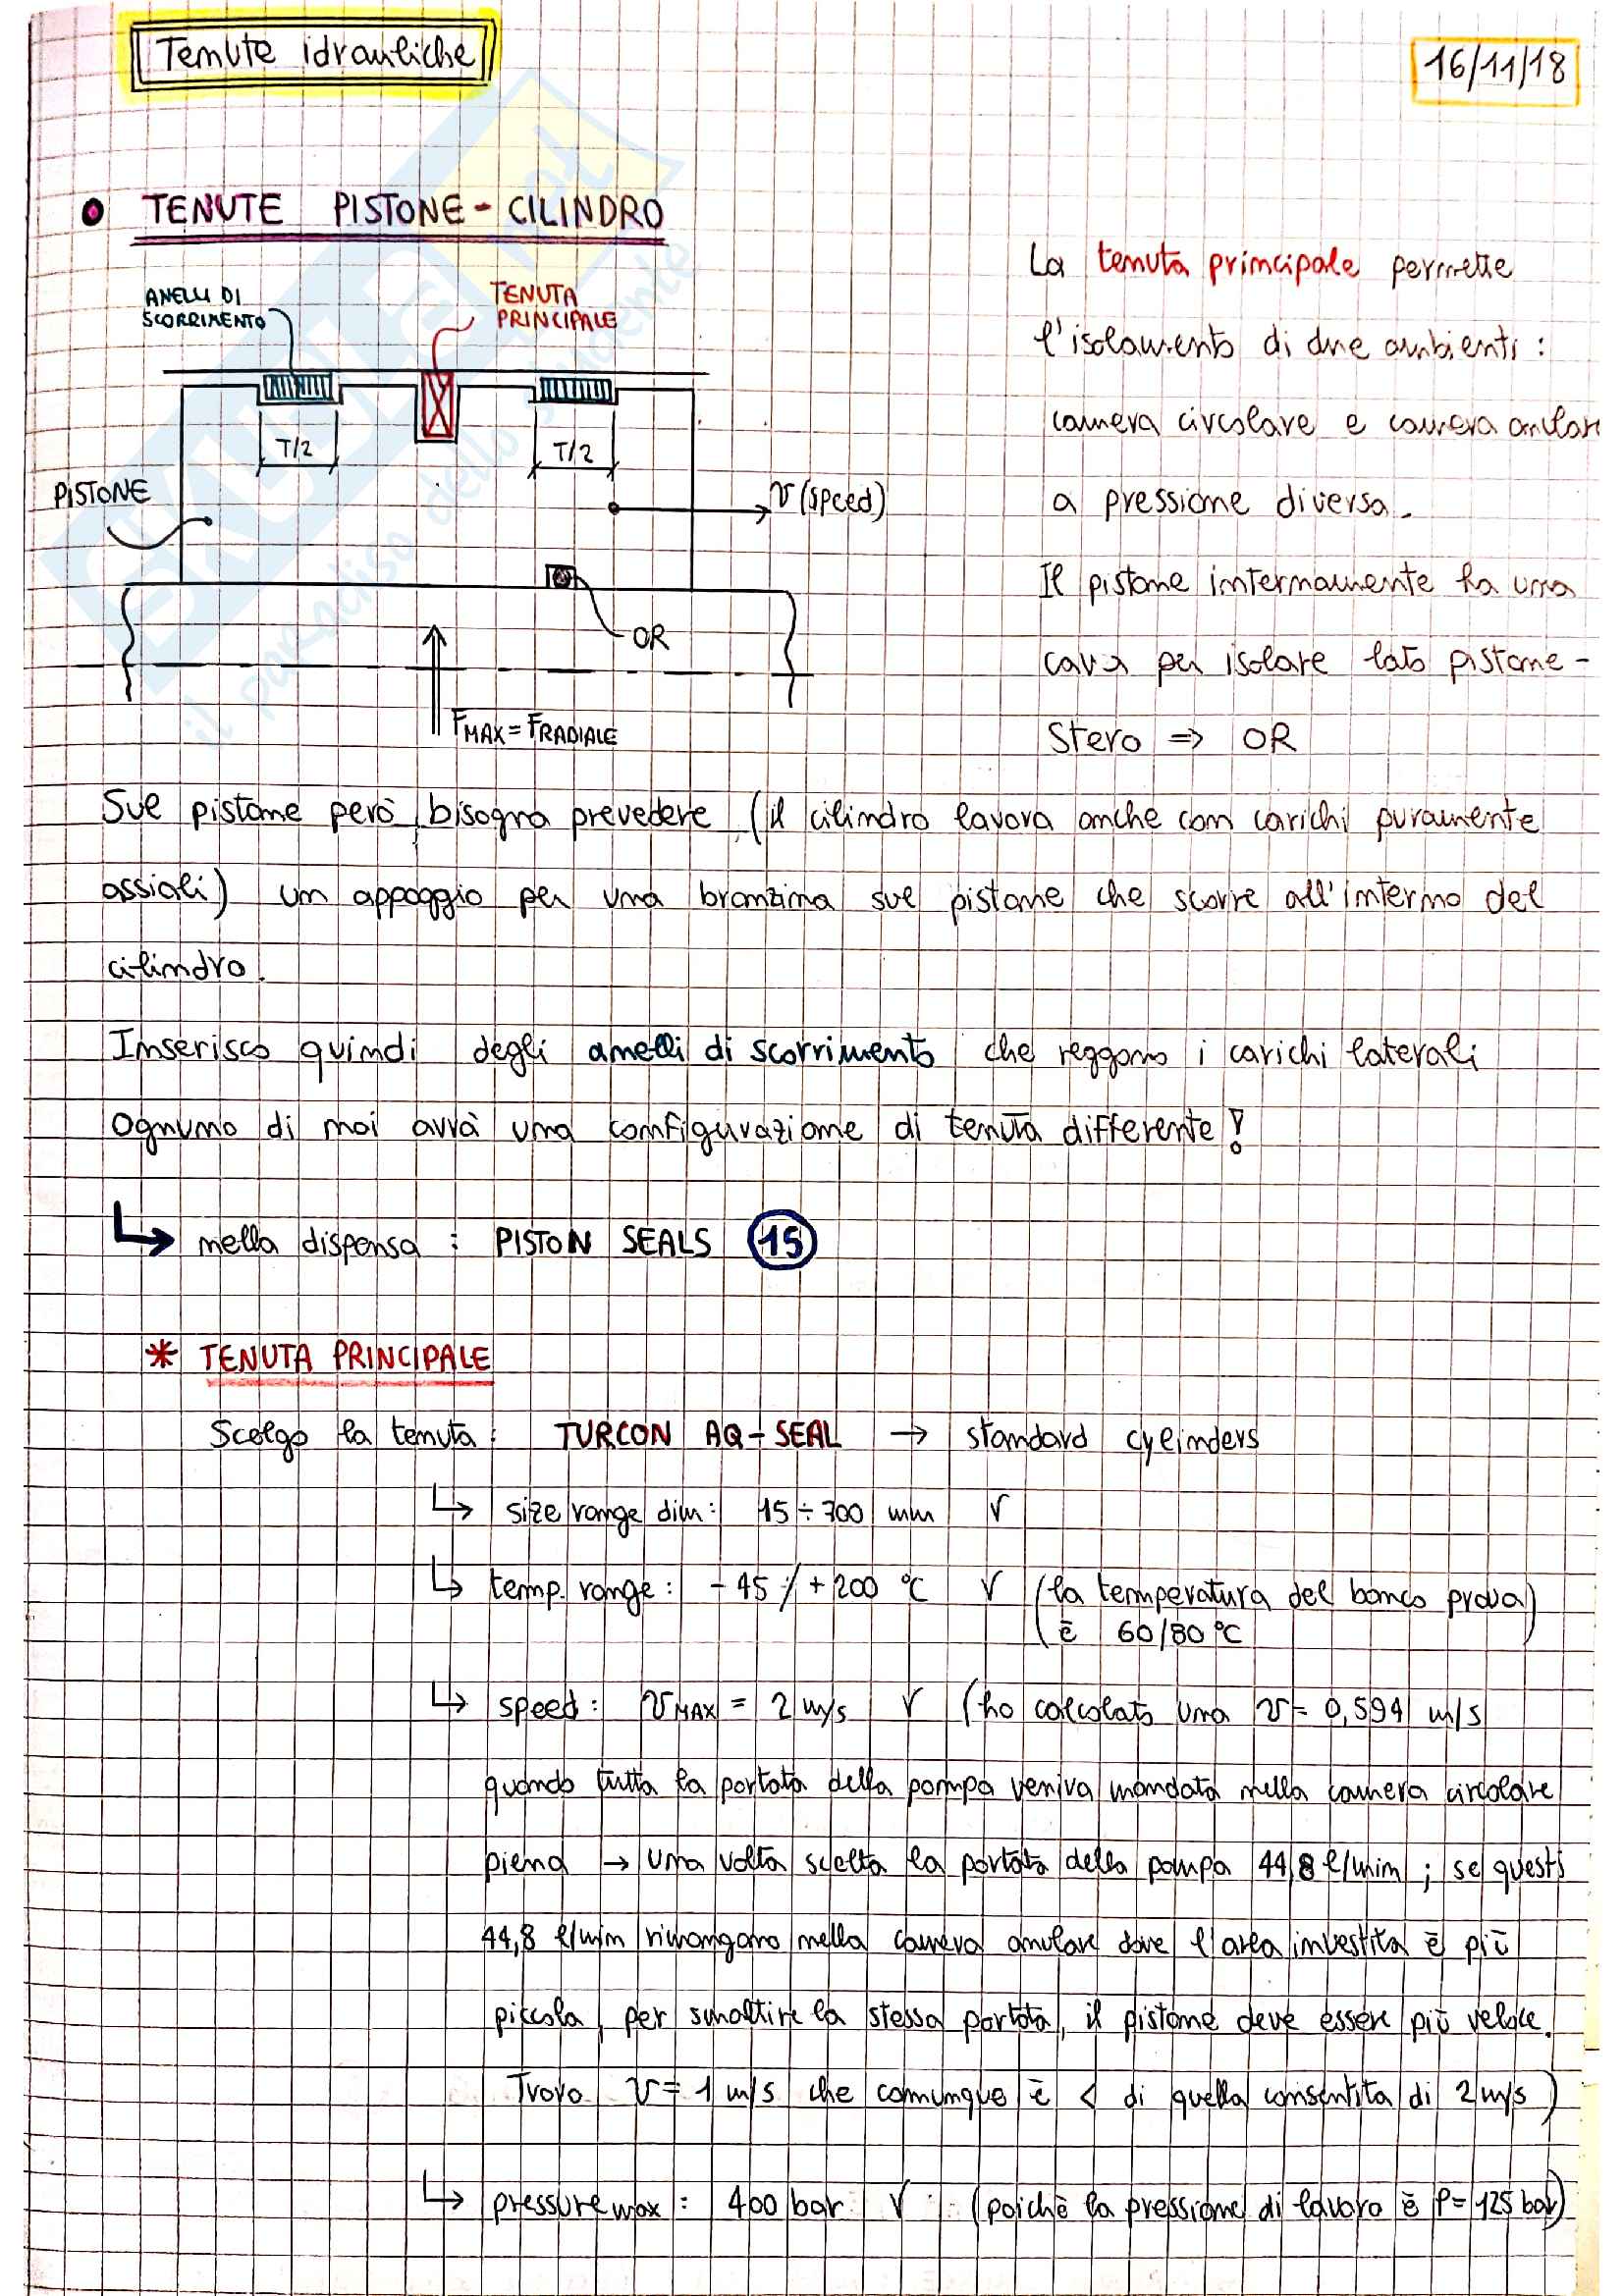 Tenute idrauliche
16/11/18
TENUTE PISTONE - CILINDRO
ANELLI DI
SCORRIMENTO
TENUTA
PRINCIPALE
T/2
T/2
PISTONE
v (speed)
OR
FMAX = FRADIALE
La tenuta principale permette
l'isolamento di due ambienti :
camera circolare e camera anulare
a pressione diversa.
Il pistone internamente ha una
cava per isolare lato pistone -
Stero => OR
Sul pistone però bisogna prevedere (il cilindro lavora anche con carichi puramente
assiali) un appoggio per una bronzina sul pistone che scorre all'interno del
cilindro.
Inserisco quindi degli anelli di scorrimento che reggono i carichi laterali
Ognuno di noi avrà una configurazione di tenuta differente!
↳ nella dispensa : PISTON SEALS 15
* TENUTA PRINCIPALE
Scelgo la tenuta : TURCON AQ-SEAL → standard cylinders
↳ size range dim : 15 ÷ 700 mm √
↳ temp. range : - 45 ÷ + 200 °C √ (la temperatura del banco prova)
è 60/80 °C
↳ speed : vMAX = 2 m/s √ (ho calcolato una v = 0,594 m/s
quando tutta la portata della pompa veniva mandata nella camera circolare
piena → una volta scelta la portata della pompa 44,8 l/min ; se questi
44,8 l/min rimangano nella camera anulare dove l'area investita è più
piccola, per smaltire la stessa portata, il pistone deve essere più veloce.
Trovo v = 1 m/s che comunque è < di quella consentita di 2 m/s )
↳ pressure max : 400 bar √ (poichè la pressione di lavoro è P = 125 bar)
SKUOLA
il paradiso dello studente